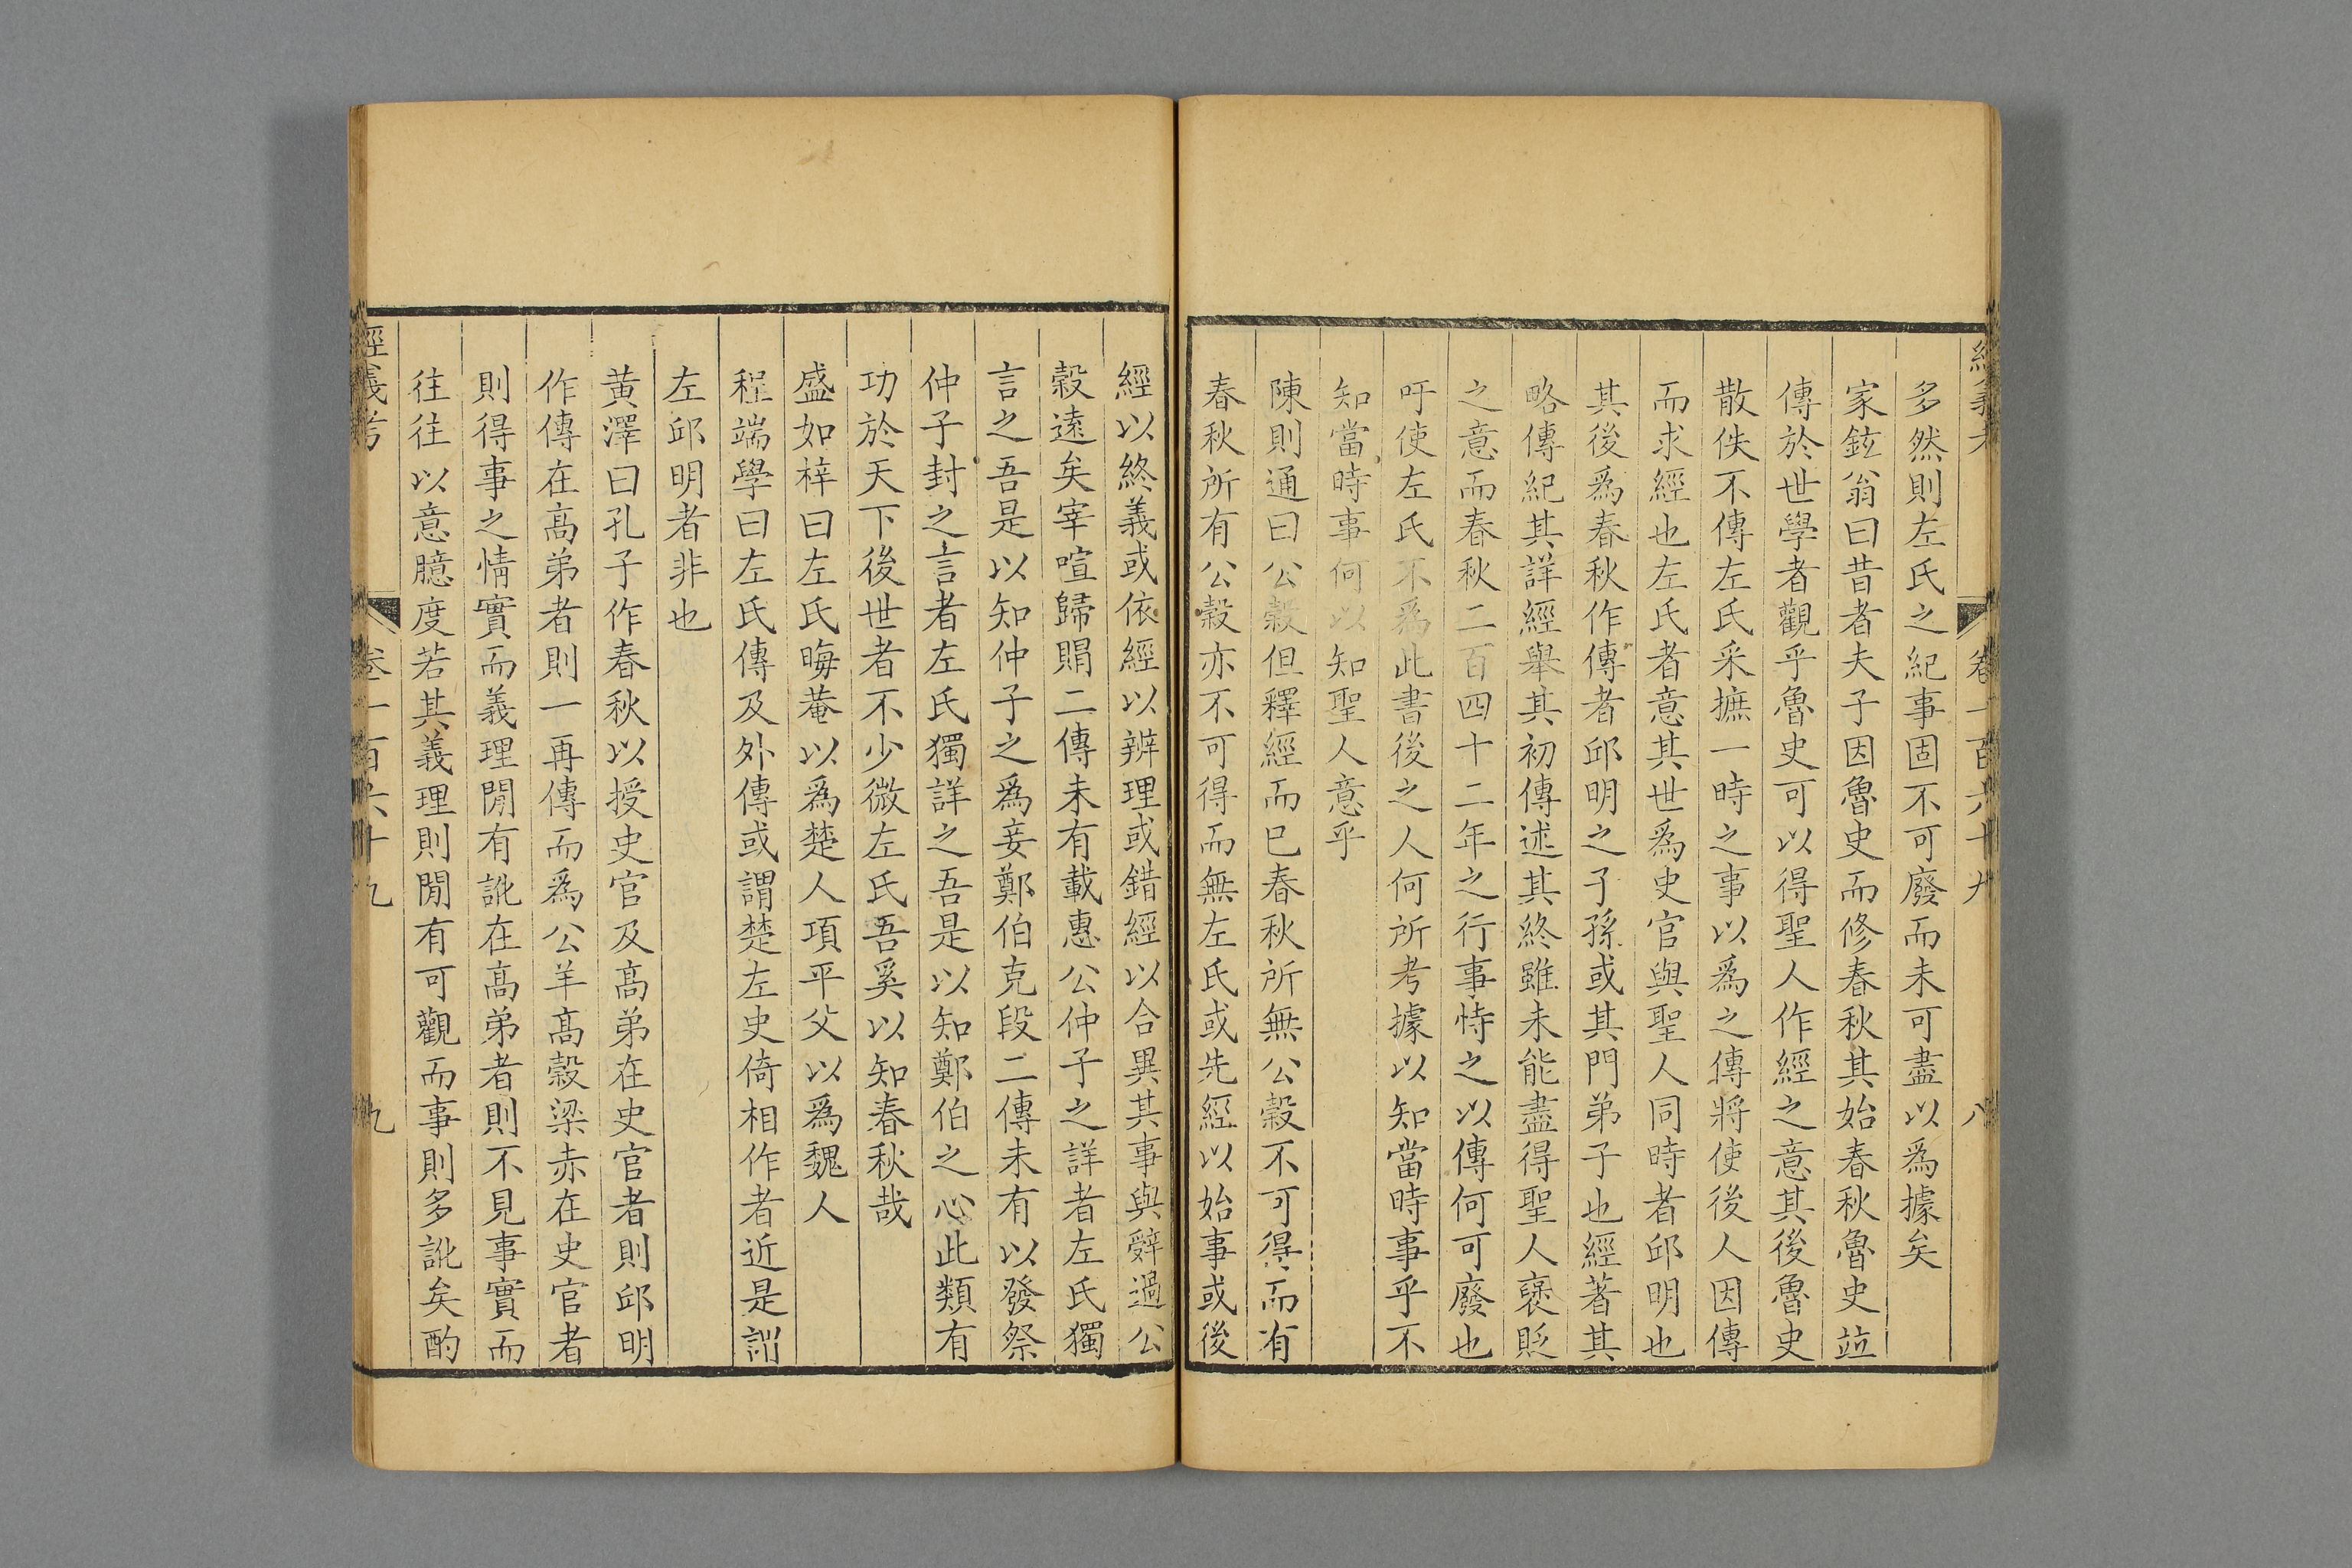 經義考 卷一百六十九 八
多然則左氏之紀事固不可廢而未可盡以爲據矣
家鉉翁曰昔者夫子因魯史而修春秋其始春秋魯史竝
傳於世學者觀乎魯史可以得聖人作經之意其後魯史
散佚不傳左氏采摭一時之事以爲之傳將使後人因傳
而求經也左氏者意其世爲史官與聖人同時者邱明也
其後爲春秋作傳者邱明之子孫或其門弟子也經著其
略傳紀其詳經舉其初傳述其終雖未能盡得聖人襃貶
之意而春秋二百四十二年之行事恃之以傳何可廢也
吁使左氏不爲此書後之人何所考據以知當時事乎不
知當時事何以知聖人意乎
陳則通曰公穀但釋經而已春秋所無公穀不可得而有
春秋所有公穀亦不可得而無左氏或先經以始事或後
經以終義或依經以辨理或錯經以合異其事與辭過公
穀遠矣宰喧歸賵二傳未有載惠公仲子之詳者左氏獨
言之吾是以知仲子之爲妾鄭伯克段二傳未有以發祭
仲子封之言者左氏獨詳之吾是以知鄭伯之心此類有
功於天下後世者不少微左氏吾奚以知春秋哉
盛如梓曰左氏晦菴以爲楚人項平父以爲魏人
程端學曰左氏傳及外傳或謂楚左史倚相作者近是謂
左邱明者非也
黃澤曰孔子作春秋以授史官及高弟在史官者則邱明
作傳在高弟者則一再傳而爲公羊高穀梁赤在史官者
則得事之情實而義理閒有訛在高弟者則不見事實而
往往以意臆度若其義理則閒有可觀而事則多訛矣酌
經義考 卷一百六十九 九